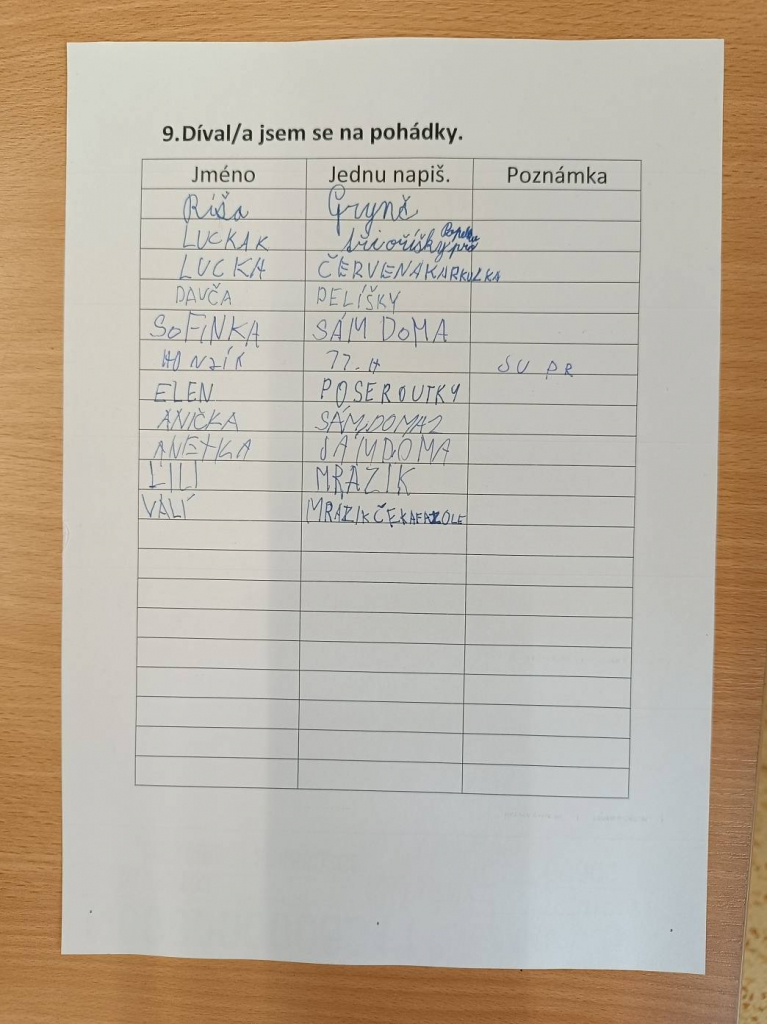 9. Díval/a jsem se na pohádky.
Jméno Jednu napiš. Poznámka
Ríša Grynč
LUCKAK tři oříšky pro Popelku
LUCKA ČERVENAKARKULKA
DAVČA PELÍŠKY
SOFINKA SÁM DOMA
HONZÍK 77. H SU PR
ELEN POSEROUTKY
ANIČKA SÁM,DOMA2
ANETKA SÁM DOMA
LILI MRAZÍK
VALÍ MRAZIKČEKAFAZOLE